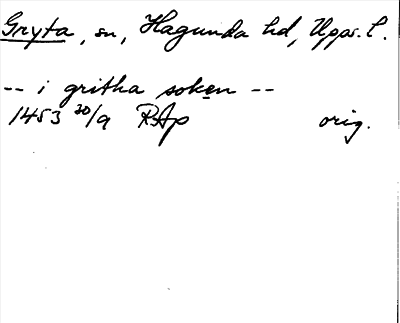 Gryta, sn, Hagunda hd, Upps. l.
-- i gritha soken --
1453 30/9 RAp orig.